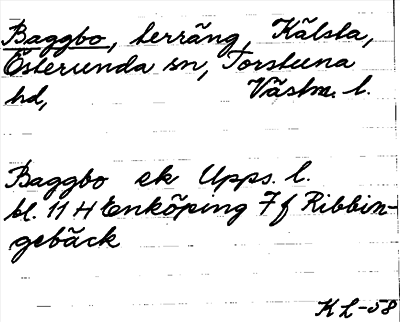 Baggbo, terräng, Kälsta,
Österunda sn, Torstuna
hd, Västm. l.
Baggbo ek Upps. l.
bl. 11 H Enköping 7 f Ribbin-
gebäck
KL-58